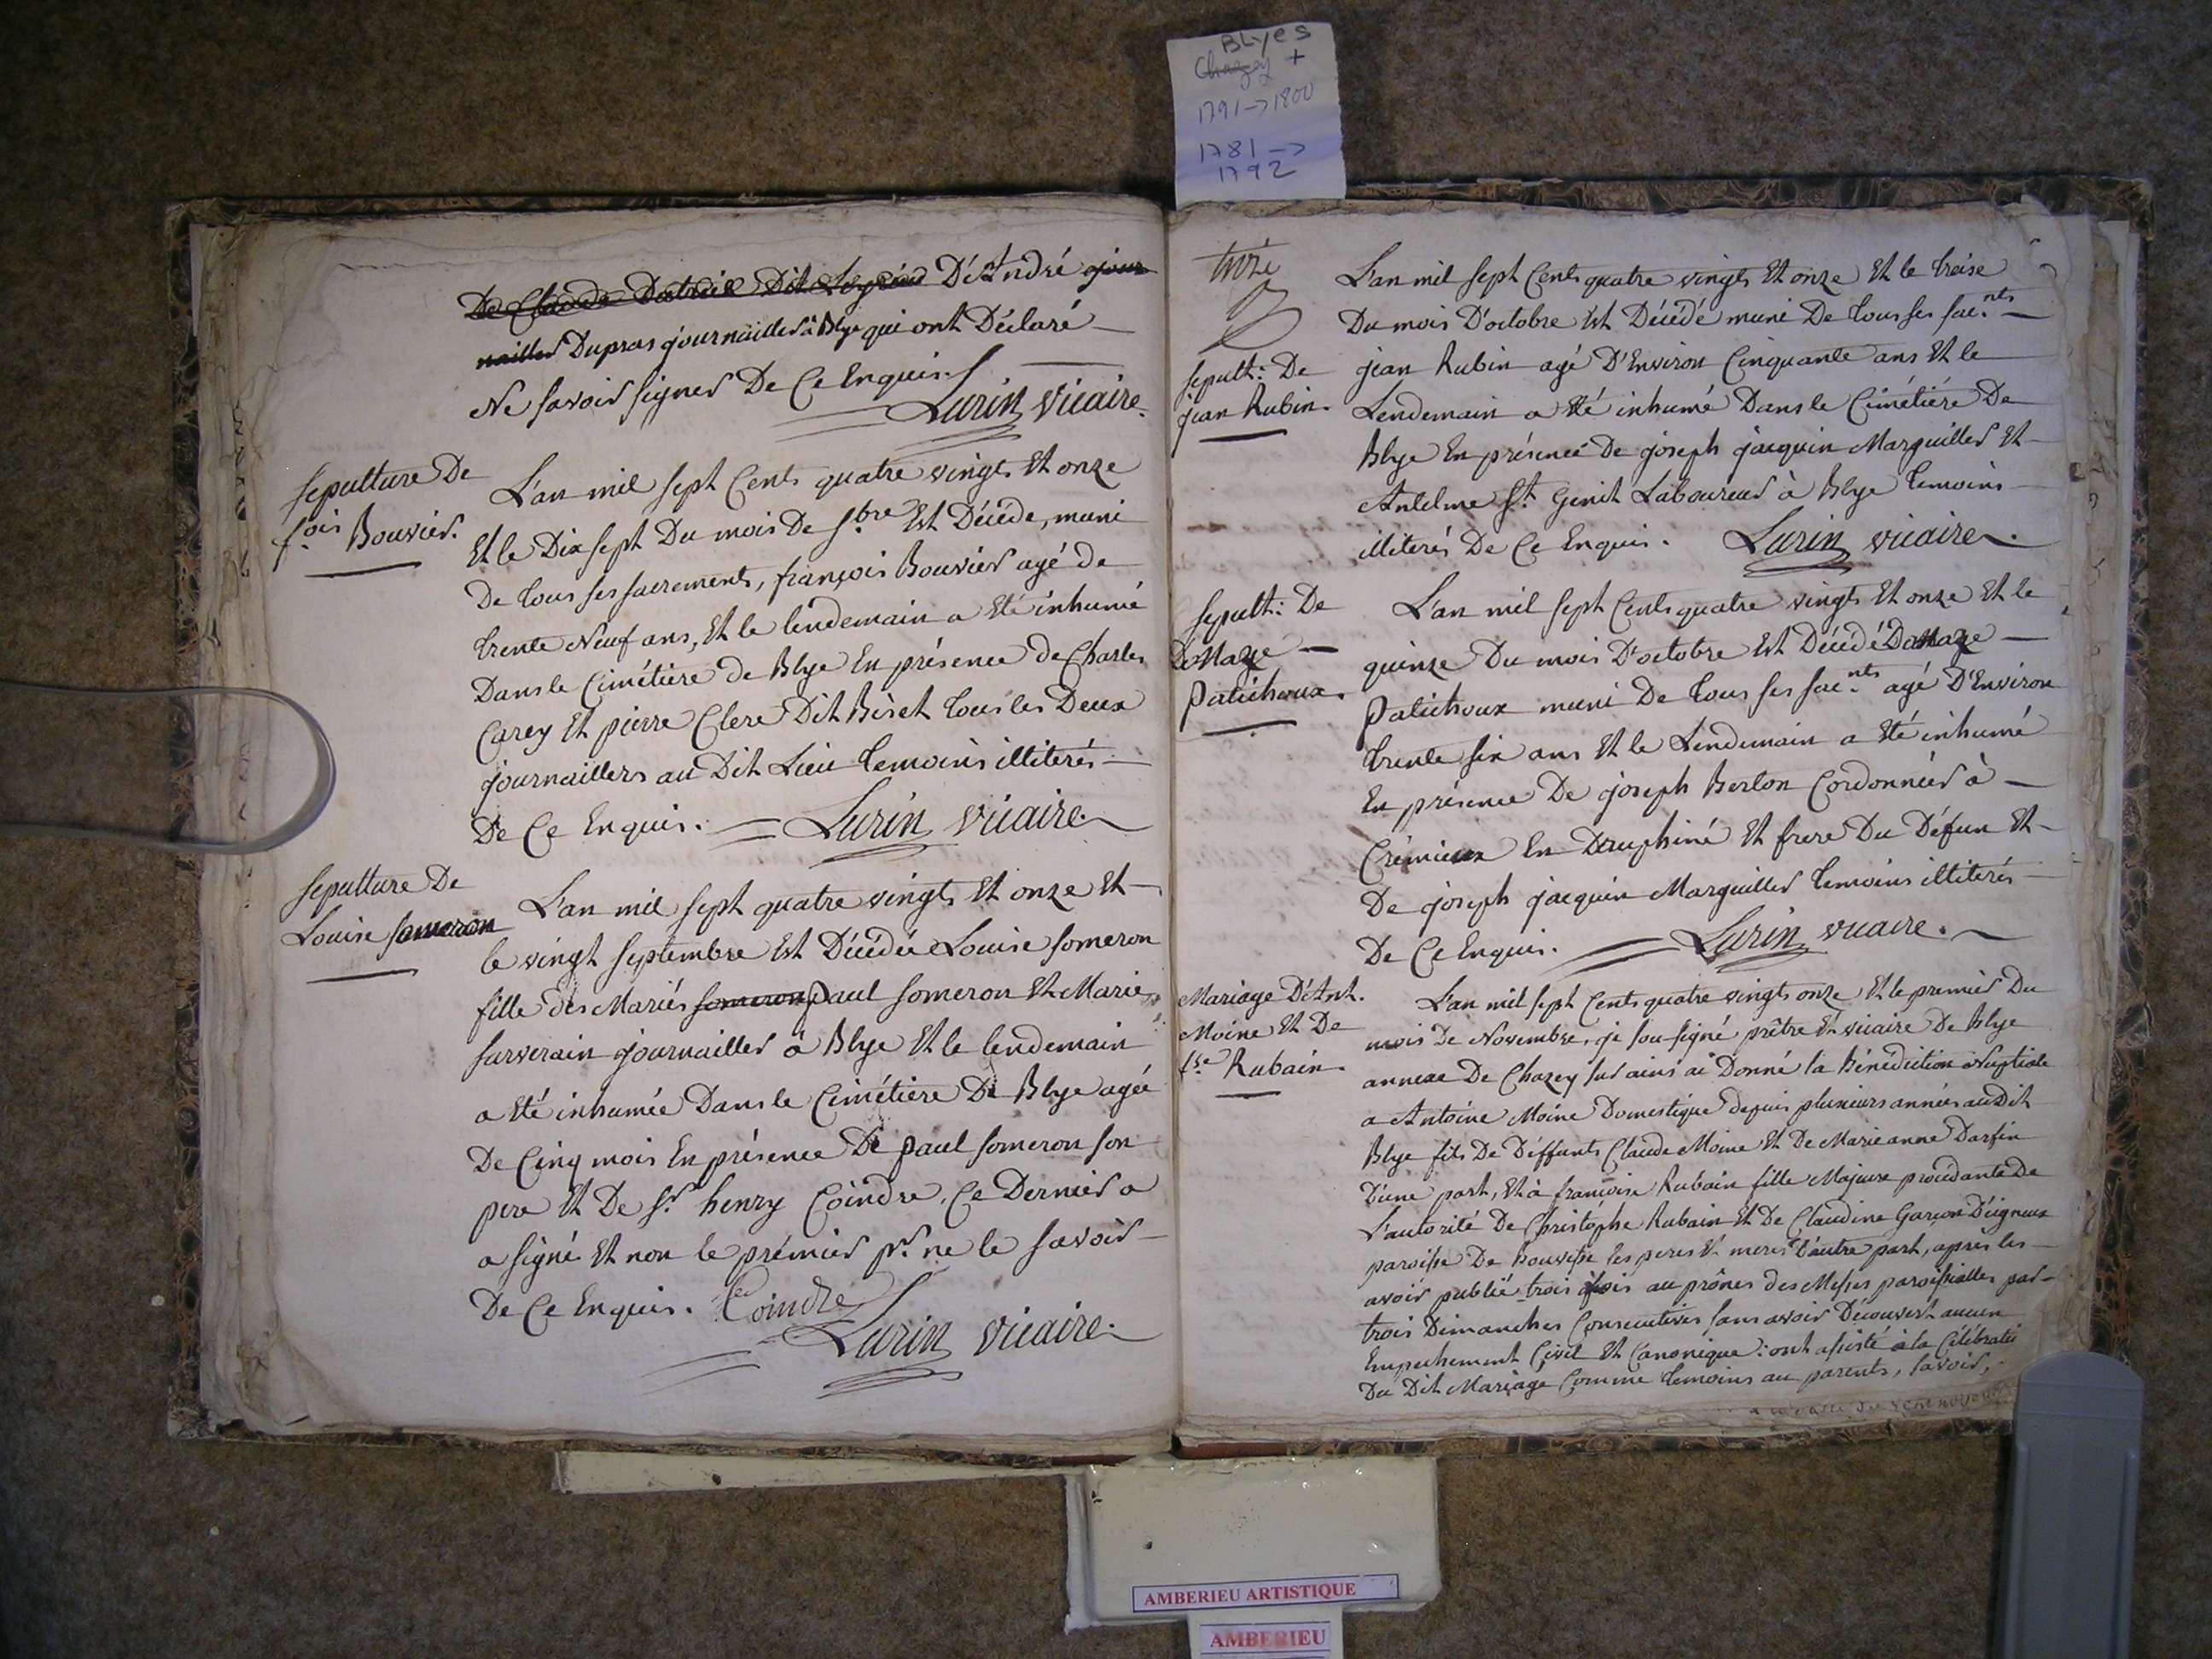 BLyes
Chazey +
1791 -> 1800
1781 ->
1792
De Claude Dit D'André jour
nailler Dupras journailler à Blye qui ont Déclaré
Ne savoir signer De Ce Enquis.
Lurin vicaire.
sepulture De
fois Bouvier.
L'an mil sept Cents quatre vingts Et onze
Et le Dix sept Du mois De 7.bre Est Décédé, muni
De tous ses sacrements, françois Bouvier agé de
trente Neuf ans, Et le lendemain a Eté inhumé
Dans le Cimétière de Blye En présence de Charles
Carey Et pierre Clere Dit Biset tous les Deux
journaillers au Dit Lieu temoins illiterés
De Ce Enquis. Lurin vicaire.
sepulture De
Louise someron
L'an mil sept quatre vingts Et onze Et
le vingt septembre Est Décédée Louise someron
fille des Mariés someron paul someron Et Marie
surverain journailler à Blye Et le lendemain
a Eté inhumée Dans le Cimétière De Blye agée
De Cinq mois En présence De paul someron son
pere Et De Sr. henry Coindre, Ce Dernier a
a signé Et non le prémier pr. ne le savoir
De Ce Enquis. Coindre
Lurin vicaire.
treize
sepult: De
jean Rubin.
L'an mil sept Cents quatre vingts Et onze Et le treise
Du mois D'octobre Est Décédé muni De tous ses sac.nts
jean Rubin agé D'Environ Cinquante ans Et le
Lendemain a Eté inhumé Dans le Cimétiére De
Blye En présence De joseph jacquin Marguiller Et
Antelme St. Genit Laboureur à Blye temoins
illiterés De Ce Enquis. Lurin vicaire.
sepult: De
Patichoux.
L'an mil sept Cents quatre vingts Et onze Et le
quinze Du mois D'octobre Est Décédé
Patichoux muni De tous ses sac.nts agé D'Environ
trente six ans Et le Lendemain a Eté inhumé
En présence De joseph Berlon Cordonnier à
Crémieux En Dauphiné Et frere Du Défun Et
De joseph jacquin Marguiller temoins illiterés
De Ce Enquis. Lurin vicaire.
Mariage D'Ant.
Moine Et De
fse Rubain.
L'an mil sept Cents quatre vingts onze Et le premier Du
mois De Novembre, je sousigné prêtre Et vicaire De Blye
annexe De Chazey sur ains ai Donné la Bénédiction Nuptiale
a Antoine Moine Domestique depuis plusieurs années au Dit
Blye fils De Déffunts Claude Moine Et De Marie anne Darfin
D'une part, Et à françoise Rubain fille Majeure procédante De
L'autorité De Christophe Rubain Et De Claudine Garçon D'eigneux
paroisse De Bouvesse les peres Et meres D'autre part, après les
avoir publié trois fois au prônes des Messes paroissialles par
trois Dimanches Consecutives sans avoir Découvert aucun
Empechement Civil Et Canonique: ont assisté à la Célébratio
Du Dit Mariage Comme temoins au parents, savoir,
AMBERIEU ARTISTIQUE
AMBERIEU